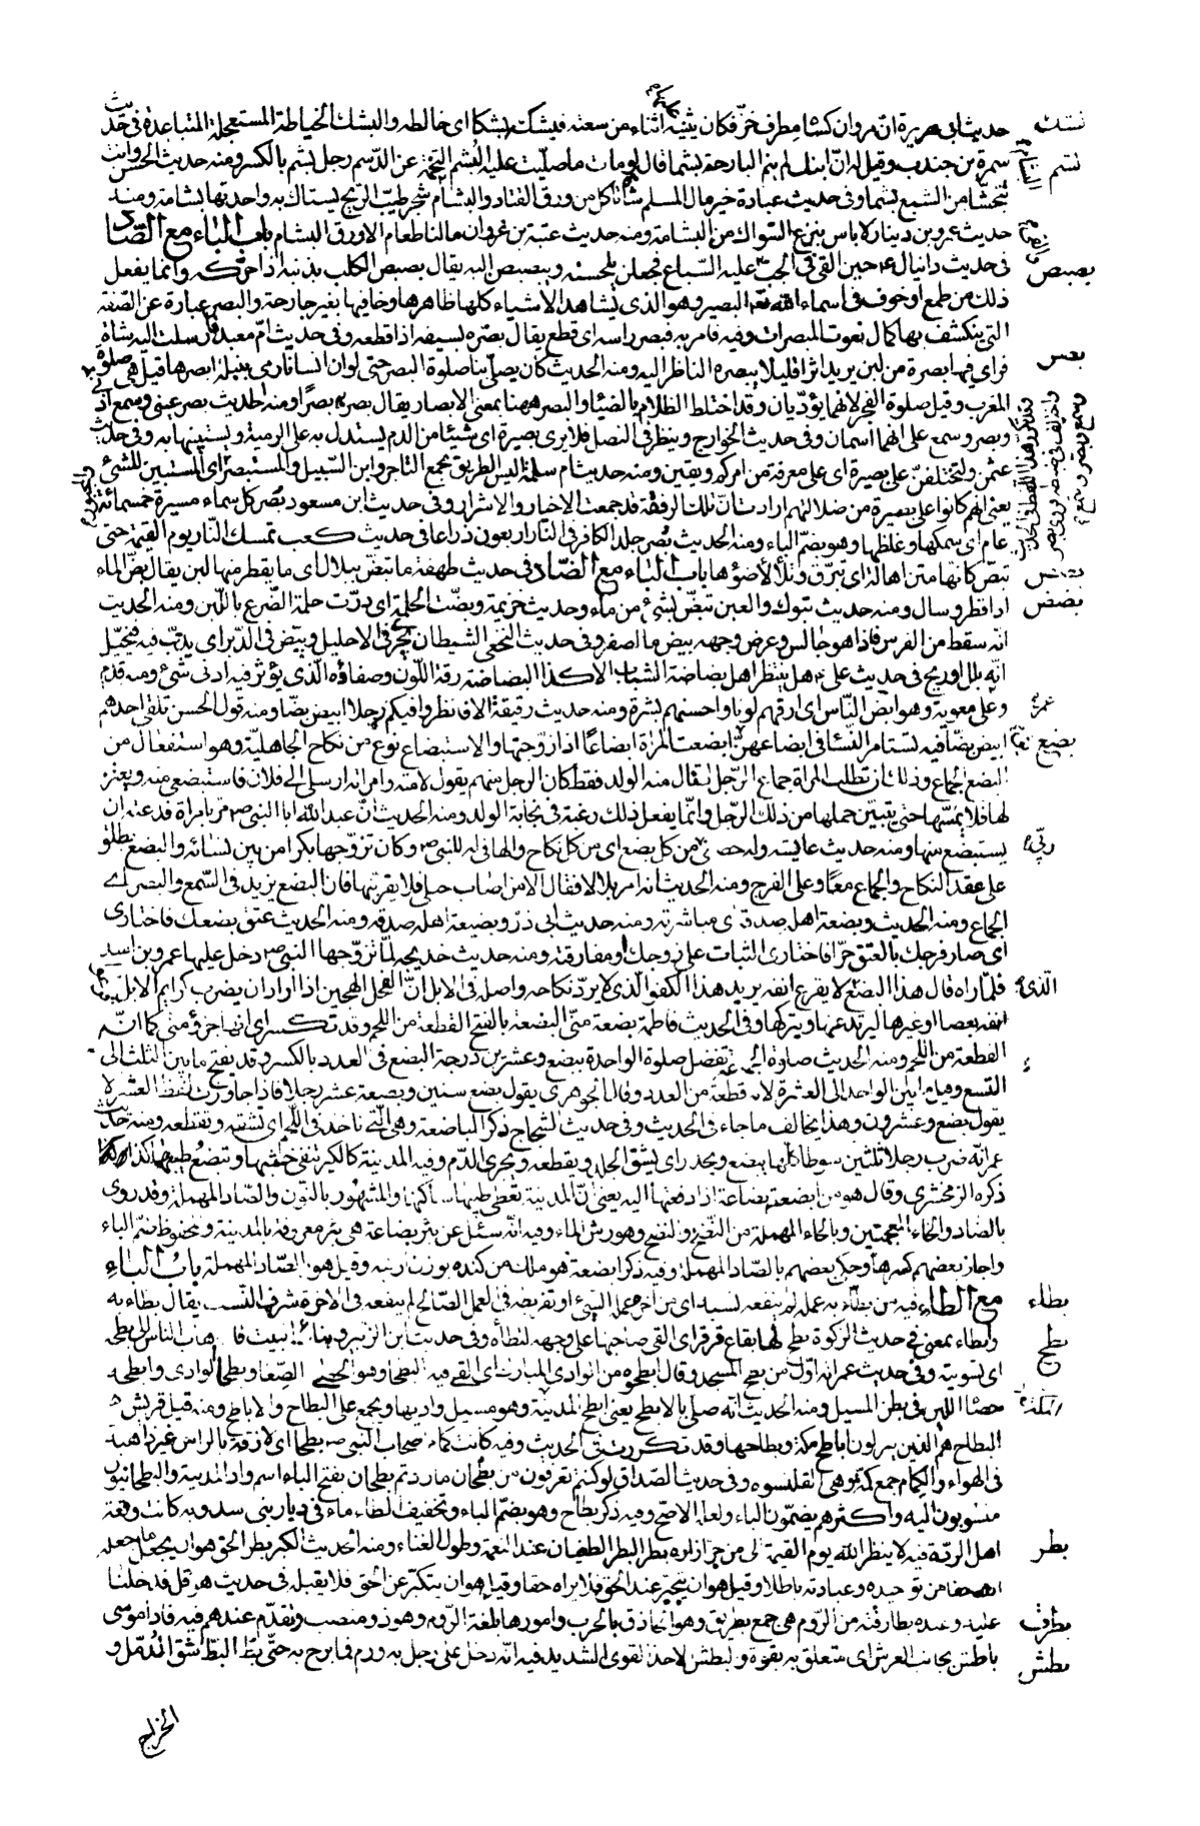 بشك حديث ابى هريرة ان مروان كساه مطرف خز فكان يثنيه اثناء من سعته فبشك بشكا اى خاطه والبشك الخياطة المستعجلة المتباعدة فى حديث
بشم سمرة بن جندب وقيل له ان ابنك لم ينم البارحة بشما قال لو مات ما صليت عليه البشم التخمة عن الدسم رجل بشم بالكسر ومنه حديث الحسن وانت
تتجشأ من الشبع بشما وفى حديث عبادة خير مال المسلم شاة تأكل من ورق القتاد والبشام شجر طيب الريح يستاك به واحدتها بشامة ومنه
حديث عمرو بن دينار لا باس بنزع السواك من البشامة ومنه حديث عتبة بن غزوان ما لنا طعام الا ورق البشام باب الباء مع الصاد
بصبص فى حديث دانيال حين القى فى الجب عليه السباع فجعلن يلحسنه ويبصبصن اليه يقال بصبص الكلب بذنبه اذا حركه وانما يفعل
ذلك من طمع او خوف فى اسماء الله تعالى البصير وهو الذى يشاهد الاشياء كلها ظاهرها وخافيها بغير جارحة والبصر عبارة عن الصفة
التى ينكشف بها كمال نعوت المبصرات وفيه فامر به فبصر راسه اى قطع يقال بصره بسيفه اذا قطعه وفى حديث ام معبد فارسلت اليه بشاة
فراى فيها بصرة من لبن يريد اثرا قليلا يبصره الناظر اليه ومنه الحديث كان يصلى بنا صلوة البصر حتى لو ان انسانا رمى بنبله ابصرها قيل هى صلوة
المغرب وقيل صلوة الفجر لانهما يؤديان وقد اختلط الظلام بالضياء والبصر ههنا بمعنى الابصار يقال بصر به بصرا ومنه الحديث بصر عينى وسمع اذنى
وبصر وسمع على انهما اسمان وفى حديث الخوارج وينظر فى النصل فلا يرى بصيرة اى شيئا من الدم يستدل به على الرمية ويستبينها به وفى حديث
عثمن ولتختلفن على بصيرة اى على معرفة من امركم ويقين ومنه حديث ام سلمة اليس الطريق يجمع التاجر وابن السبيل والمستبصر اى المستبين للشئ
يعنى انهم كانوا على بصيرة من ضلالتهم ارادت ان تلك الرفقة قد جمعت الاخيار والاشرار وفى حديث ابن مسعود بصر كل سماء مسيرة خمسمائة
عام اى سمكها وغلظها وهو بضم الباء ومنه الحديث بصر جلد الكافر فى النار اربعون ذراعا فى حديث كعب تمسك النار يوم القيمة حتى
تبص كانها متن اهالة اى تبرق وتلألأ ضوؤها باب الباء مع الضاد فى حديث طهفة ما تبض ببلال اى ما يقطر منها لبن يقال بض الماء
بضض اذا قطر وسال ومنه حديث تبوك والعين تبض بشئ من ماء وحديث خزيمة وبضت الحلمة اى درت حلمة الضرع باللبن ومنه الحديث
انه سقط من الفرس فاذا هو جالس وعرض وجهه يبض ماء اصفر وفى حديث النخعى الشيطان يجرى فى الاحليل ويبض فى الدبر اى يدب فيه فيخيل
انه بلل او ريح فى حديث على هل ينتظر اهل بضاضة الشباب الا كذا البضاضة رقة اللون وصفاؤه الذى يؤثر فيه ادنى شئ ومنه قدم
عمر وعلى معوية وهو ابض الناس اى ارقهم لونا واحسنهم بشرة ومنه حديث رقيقة الا فانظروا فيكم رجلا ابيض بضا ومنه قول الحسن تلقى احدهم
بضع ابيض بضا فيه تستامر النساء فى ابضاعهن ابضعت المراة ابضاعا اذا زوجتها والاستبضاع نوع من نكاح الجاهلية وهو استفعال من
البضع الجماع وذلك ان تطلب المراة جماع الرجل لتنال منه الولد فقط كان الرجل منهم يقول لامته وامراته ارسلى الى فلان فاستبضعى منه ويعتزلها
لها فلا يمسها حتى يتبين حملها من ذلك الرجل وانما يفعل ذلك رغبة فى نجابة الولد ومنه الحديث ان عبد الله ابا النبى مر بامراة فدعته ان
يستبضع منها ومنه حديث عايشة وله حصنى من كل بضع اى من كل نكاح والهاء فى له للنبى وكان تزوجها بكرا من بين نسائه والبضع يطلق
على عقد النكاح والجماع معا وعلى الفرج ومنه الحديث انه امر بلالا فقال الا من اصاب حبلى فلا يقربنها فان البضع يزيد فى السمع والبصر اى
الجماع ومنه الحديث وبضعة اهله صدقة اى مباشرته ومنه حديث ابى ذر وبضيعة اهله صدقه ومنه الحديث عتق بضعك فاختارى
اى صار فرجك بالعتق حرا فاختارى الثبات على زوجك او مفارقته ومنه حديث خديجة لما تزوجها النبى دخل عليها عمرو بن اسد
فلما راه قال هذا البضع لا يقرع انفه يريد هذا الكفو الذى لا يرد نكاحه واصله فى الابل ان الفحل الهجين اذا اراد ان يضرب كرايم الابل
انفه بعصا او غيرها ليرتد عنها ويتركها وفى الحديث فاطمة بضعة منى البضعة بالفتح القطعة من اللحم وقد تكسر اى انها جزؤ منى كما ان
القطعة من اللحم ومنه الحديث صلوة الجماعة تفضل صلوة الواحدة ببضع وعشرين درجة البضع فى العدد بالكسر وقد يفتح ما بين الثلث الى
التسع وقيل ما بين الواحد الى العشرة لانه قطعة من العدد وقال الجوهرى يقول بضع سنين وبضعة عشر رجلا فاذا جاوزت لفظ العشر لا
يقول بضع وعشرون وهذا يخالف ما جاء فى الحديث وفى حديث الشجاج ذكر الباضعة وهى التى تاخذ فى اللحم اى تشقه وتقطعه ومنه حديث
عمر انه ضرب رجلا ثلثين سوطا كلها يبضع ويحدر اى يشق الجلد ويقطعه ويجرى الدم وفيه المدينة كالكير تنفى خبثها وتبضع طيبها كذا
ذكره الزمخشرى وقال هو من ابضعته بضاعة اذا دفعتها اليه يعنى ان المدينة تعطى طيبها ساكنها والمشهور بالنون والصاد المهملة وقد روى
بالضاد والخاء المعجمتين وبالحاء المهملة من النضخ والنضح وهو رش الماء وفيه انه سئل عن بئر بضاعة هى بئر معروفة بالمدينة والمحفوظ ضم الباء
واجاز بعضهم كسرها وحكى بعضهم بالصاد المهملة وفيه ذكر ابضعة هو ملك من كندة بوزن ارنبة وقيل هو بالصاد المهملة باب الباء
بطاء مع الطاء فيه من بطأ به عمله لم ينفعه نسبه اى من اخره عمله السيئ او تفريطه فى العمل الصالح لم ينفعه فى الاخرة شرف النسب يقال بطاء به
بطح وابطاء بمعنى فى حديث الزكوة بطح لها بقاع قرقر اى القى صاحبها على وجهه لتطأه وفى حديث ابن الزبير وبناء البيت فاهاب الناس الى بطحه
اى تسويته وفى حديث عمر انه اول من بطح المسجد وقال ابطحوه من الوادى المبارك اى القى فيه البطحاء وهو الحصى الصغار وبطحاء الوادى وابطحه
حصاه اللين فى بطن المسيل ومنه الحديث انه صلى بالابطح يعنى ابطح المدينة وهو مسيل واديها ويجمع على البطاح والاباطح ومنه قيل قريش
البطاح هم الذين ينزلون اباطح مكة وبطاحها وقد تكررت فى الحديث وفيه كانت كمام اصحاب النبى بطحا اى لازقة بالراس غير ذاهبة
فى الهواء والكمام جمع كمة وهى القلنسوة وفى حديث الصداق لو كنتم تغرفون من بطحان ما زدتم بطحان بفتح الباء اسم واد المدينة والبطحانيون
منسوبون اليه واكثرهم يضمون الباء ولعله الاصح وفيه ذكر بطاح وهو بضم الباء وتخفيف الطاء ماء فى ديار بنى اسد وبه كانت وقعة
بطر اهل الردة فيه لا ينظر الله يوم القيمة الى من جر ازاره بطرا البطر الطغيان عند النعمة وطول الغناء ومنه الحديث الكبر بطر الحق هو ان يجعل ما جعله
الله حقا من توحيده وعبادته باطلا وقيل هو ان يتجبر عند الحق فلا يراه حقا وقيل هو ان يتكبر عن الحق فلا يقبله فى حديث هرقل فدخلنا
بطرق عليه وعنده بطارقته من الروم هى جمع بطريق وهو الحاذق بالحرب وامورها بلغة الروم وهو ذو منصب وتقدم عندهم فيه فاذا موسى
بطش باطش بجانب العرش اى متعلق به بقوة والبطش الاخذ القوى الشديد فيه انه دخل على رجل به ورم فما برح به حتى بط البط شق الدمل و
الخراج